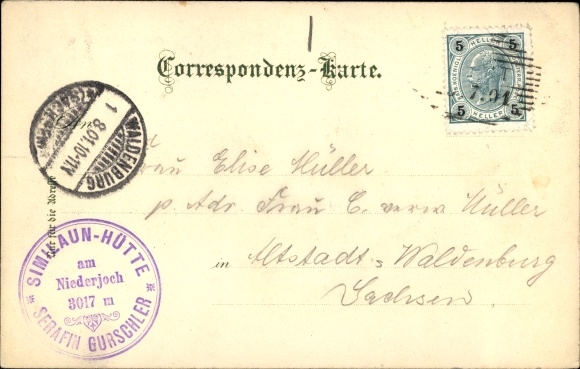 1
Correspondenz-Karte.
5 HELLER 5
5 HELLER 5
7.01
WALDENBURG
1 8.01.10-11V
Nur für die Adresse
Frau Elise Müller
p. Adr. Frau C. verw. Müller
in Altstadt-Waldenburg
Sachsen.
SIMILAUN-HÜTTE
am
Niederjoch
3017 m
SERAFIN GURSCHLER